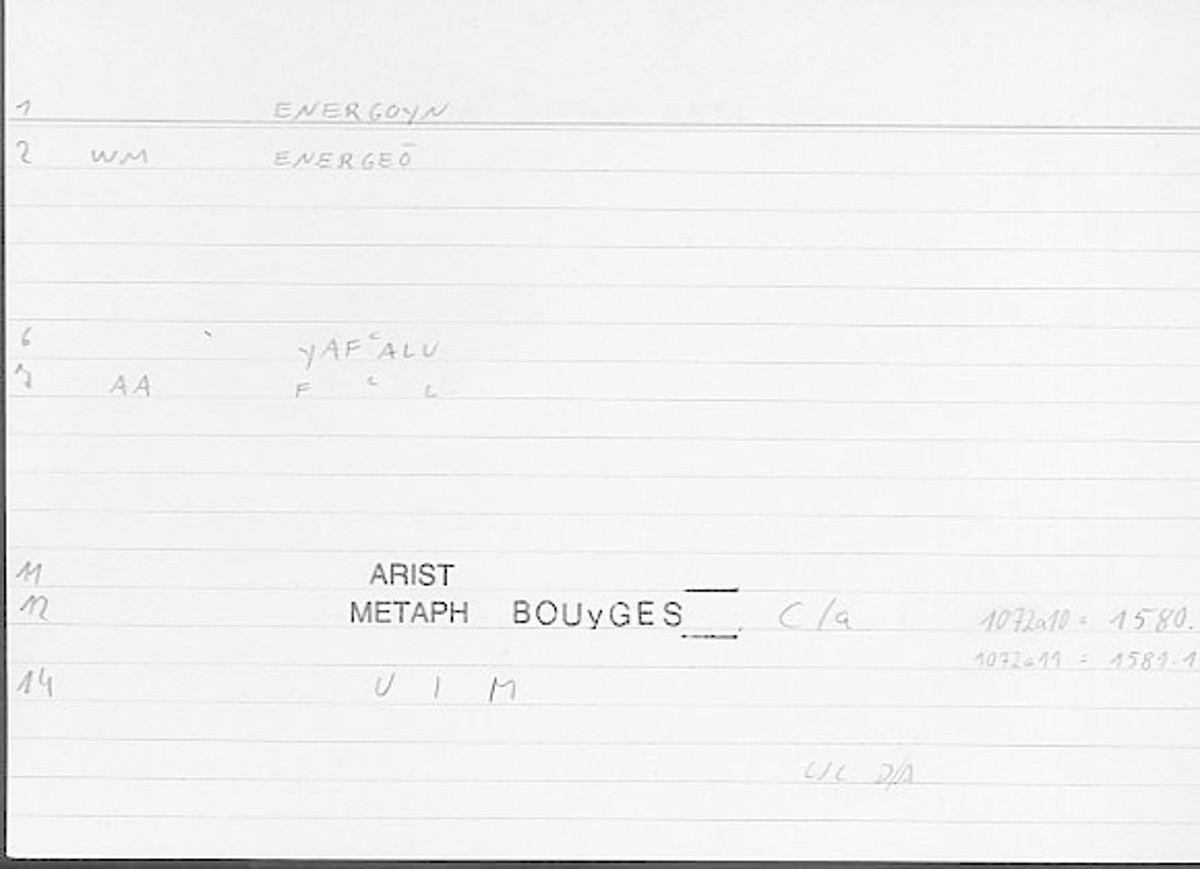 1 ENERGOYN
2 WM ENERGEŌ
6 yAFᶜALU
7 AA F ᶜ L
11 ARIST
12 METAPH BOUyGES C/a 1072a10 = 1580.
1072a11 = 1581.1
14 U I M